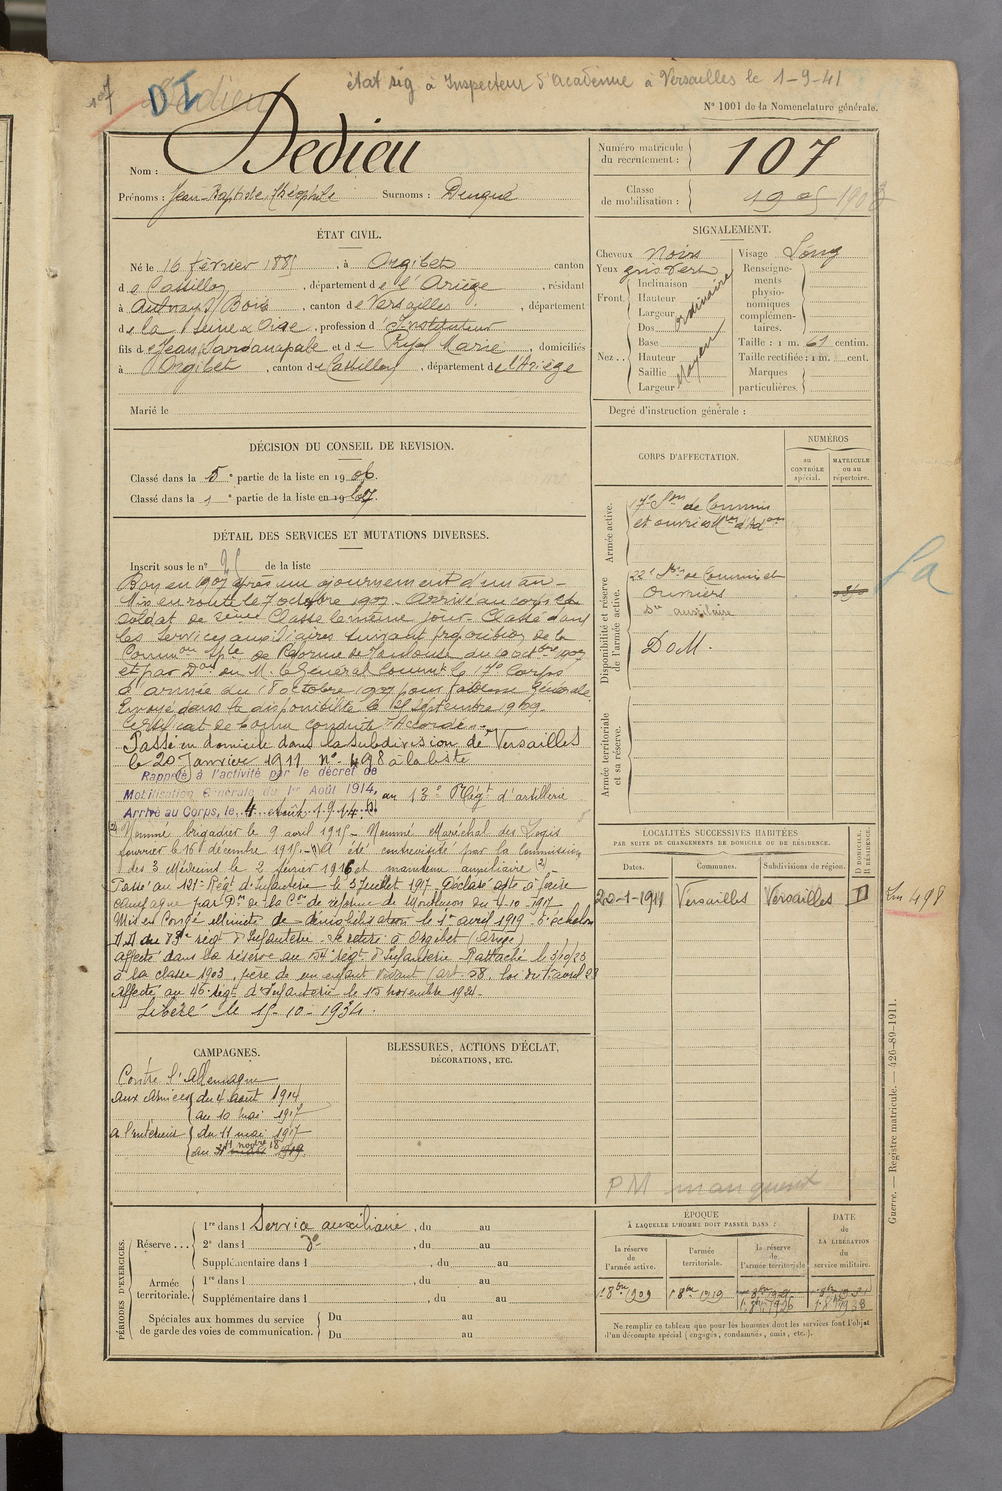 107
DI
Dedieu
état sig à Inspecteur d'académie à Versailles le 1-9-41
N° 1001 de la Nomenclature générale.
Nom : Dedieu
Prénoms : Jean-Baptiste Théophile Surnoms :
Numéro matricule du recrutement : 107
Classe de mobilisation : 1905 1903
ÉTAT CIVIL.
Né le 16 février 1885, à Orgibet canton
de Castillon, département de l'Ariège, résidant
à Aulnay s/ Bois, canton de Versailles, département
de la Seine & Oise, profession d Instituteur
fils de Jean Sardanapale et de Marie, domiciliés
à Orgibet, canton de Castillon, département de l'Ariège
Marié le
SIGNALEMENT.
Cheveux noirs
Yeux gris vert
Front. Inclinaison Hauteur Largeur ordinaire
Nez. Dos Base Hauteur Saillie Largeur Moyen
Visage Long
Renseignements physionomiques complémentaires.
Taille : 1 m. 61 centim.
Taille rectifiée : 1 m. cent.
Marques particulières.
Degré d'instruction générale :
DÉCISION DU CONSEIL DE REVISION.
Classé dans la 5e partie de la liste en 1906.
Classé dans la 1e partie de la liste en 1907.
DÉTAIL DES SERVICES ET MUTATIONS DIVERSES.
Inscrit sous le n° de la liste
Bon en 1907 après un ajournement d'un an -
Mis en route le 7 octobre 1907. Arrivé au corps et
soldat de 2ème classe le même jour. Classé dans
les services auxiliaires suivant proposition de la
Common Sple de Réforme de Toulouse du octobre 1907
et par Don de M. le Général Commt le 17e Corps
d'armée du 18 octobre 1907 pour faiblesse générale.
Envoyé dans la disponibilité le septembre 1909.
Certificat de bonne conduite "Accordé".
Passé en domicile dans la subdivision de Versailles
le 20 Janvier 1911 n° 498 à la liste
Rappelé à l'activité par le décret de
Mobilisation Générale du 1er Août 1914, au 13e Régt d'artillerie
Arrivé au Corps, le 4 août 1914.
Nommé brigadier le 9 avril 1915 - Nommé Maréchal des Logis
fourrier le 16 décembre 1915. A été contrevisité par la Commission
des 3 Médecins le 2 février 1916 et maintenu auxiliaire
Passé au 121e Régt d'Infanterie le 5 Juillet 1917 Déclaré apte à faire
campagne par Don de la Con de réforme de Montluçon du 4-10-1917
Mis en Congé illimité de démobilisation le 1er avril 1919 - 6e échelon
DD du 83e régt d'Infanterie. Se retire à Orgibet (Ariège)
affecté dans la réserve au régt d'Infanterie. Rattaché le
à la classe 1903, père de un enfant vivant (art. 58, loi du 1er avril 23
Affecté au 46e régt d'Infanterie le 15 novembre 1924.
Libéré le 15-10-1934.
CORPS D'AFFECTATION.
NUMÉROS
au CONTRÔLE spécial.
MATRICULE ou au répertoire.
Armée active.
17e Son de Commis
et ouvriers
Disponibilité et réserve de l'armée active.
22e Son de Commis et
Ouvriers
Sce auxiliaire
DoM.
Sa
Armée territoriale et sa réserve.
LOCALITÉS SUCCESSIVES HABITÉES
PAR SUITE DE CHANGEMENTS DE DOMICILE OU DE RÉSIDENCE.
Dates. Communes. Subdivisions de région. D DOMICILE. R RÉSIDENCE.
20-1-1911 Versailles Versailles D
498
PM manquent
CAMPAGNES.
Contre l'Allemagne
aux armées du 4 août 1914
au 10 mai 1917
à l'intérieur du 11 mai 1917
au 11 novbre 18
BLESSURES, ACTIONS D'ÉCLAT,
DÉCORATIONS, ETC.
PÉRIODES D'EXERCICES.
Réserve... 1re dans l Service auxiliaire, du au
2e dans l do, du au
Supplémentaire dans l , du au
Armée territoriale. 1re dans l , du au
Supplémentaire dans l , du au
Spéciales aux hommes du service de garde des voies de communication. Du au
Du au
ÉPOQUE
À LAQUELLE L'HOMME DOIT PASSER DANS :
la réserve de l'armée active.
l'armée territoriale.
la réserve de l'armée territoriale
DATE de LA LIBÉRATION du service militaire.
1.8bre 1909 1.8bre 1919
1.8bre 1926 1.8bre 1933
Ne remplir ce tableau que pour les hommes dont les services font l'objet
d'un décompte spécial (engagés, condamnés, omis, etc.).
Guerre. — Registre matricule. — 426-89-1911.